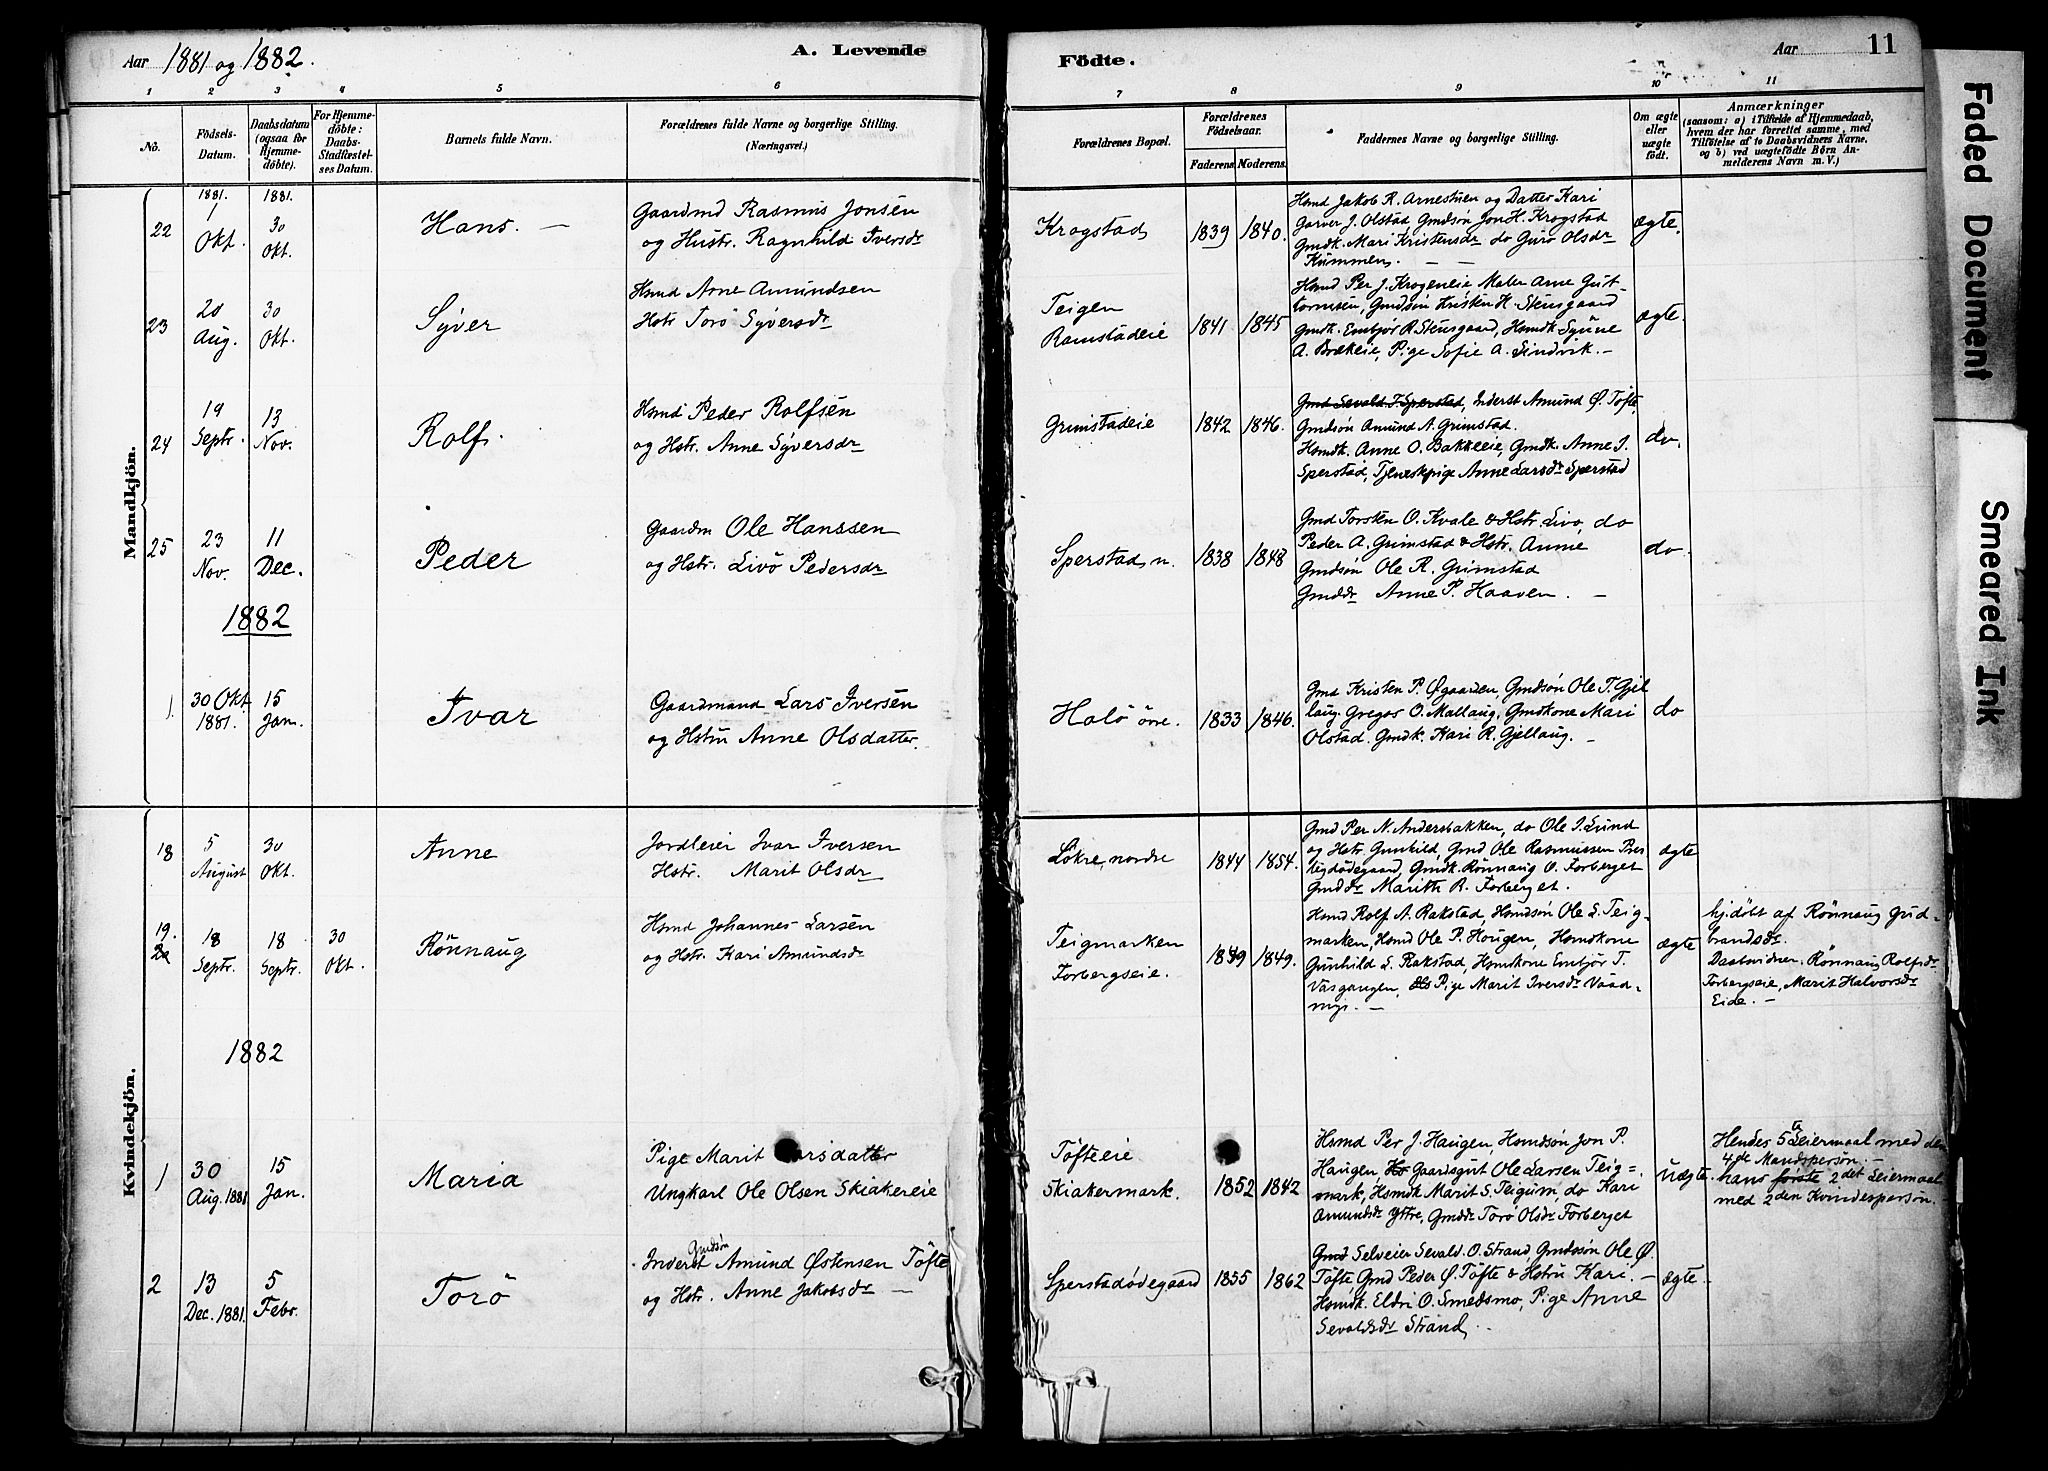 Aar 1881 og 1882.
A. Levende
Födte.
Aar
11
1 2 3 4 5 6
7 8 9 10 11
No.
Födsels-
Datum.
Daabsdatum
(ogsaa for
Hjemme-
döbte).
For Hjemme-
döbte:
Daabs-
Stadfæstel-
ses Datum.
Barnets fulde Navn.
Forældrenes fulde Navne og borgerlige Stilling.
(Næringsvei.)
Forældrenes Bopæl.
Forældrenes
Födselsaar.
Faderens Moderens.
Faddernes Navne og borgerlige Stilling.
Om ægte
eller
uægte
födt.
Anmærkninger
(saasom: a) i Tilfælde af Hjemmedaab,
hvem der har forrettet samme, med
Tilföielse af to Daabsvidners Navne,
og b) ved uægtefödte Börn An-
melderens Navn m. V.)
Mandkjön.
22
1881.
1
Okt.
1881.
30
Okt.
Hans. —
Gaardmd Rasmus Jonsen
og Hustr. Ragnhild Iversdr
Krogstad
1839 1840.
Hsmd Jakob R. Arnestuen og Datter Kari
Garver J. Olstad, Gmdsön Jon H. Krogstad
Gmdk. Mari Kristensdr do Guro Olsdr
Kummen. — —
ægte.
23
20
Aug.
30
Okt.
Syver
Hsmd Arne Amundsen
Hstr Torö Syversdr
Teigen
Ramstadeie
1841 1845
Hsmd Per J. Krogeneie, Maler Arne Gut-
tormsen, Gmdsön Kristen H. Stensgaard
Gmdk. Embjör R. Stensgaard, Hsmdk Synne
A. Brækeie, Pige Sofie A. Sindvik. —
ægte.
24
19
Septr.
13
Nov.
Rolf.
Hsmd Peder Rolfsen
og Hstr. Anne Syversdr
Grimstadeie
1842 1846.
Gmd Sevald T. Sperstad, Inderst Amund Ø. Töfte,
Gmdsön Amund A. Grimstad.
Hsmdk. Anne O. Bakkeeie, Gmdk. Anne I.
Sperstad, Tjeneskpige Anne Larsdr Sperstad
do.
25
23
Nov.
11
Dec.
Peder
Gaardm Ole Hanssen
og Hstr. Livö Pedersdr
Sperstad n.
1838 1848
Gmd Torsten O. Kvale & Hstr. Livo, do
Peder A. Grimstad & Hstr. Anne
Gmdsön Ole R. Grimstad
Gmddr Anne P. Haaven. —
do.
1882
1.
30 Okt.
1881.
15
Jan.
Ivar
Gaardmand Lars Iversen
og Hstru Anne Olsdatter.
Halö övre.
1833 1846.
Gmd Kristen P. Øgaarden, Gmdsön Ole T. Gjel
laug. Gregor O. Mallaug, Gmdkone Mari
Olstad. Gmdk. Kari R. Gjellaug. —
do
Kvindekjön.
18
5
August
30
Okt.
Anne
Jordleier Ivar Iversen
Hstr. Marit Olsdr
Lökre nordre
1844 1854.
Gmd Per N. Andersbakken, do Ole I. Lund
og Hstr. Gunhild, Gmd Ole Rasmussen
Gmdk. Rönnaug O. Forberget
Gmddr Marith R. Forberget.
ægte
19.
20
18
Septr.
18
Septr.
30
Okt.
Rönnaug
Hsmd Johannes Larsen
og Hstr. Kari Amundsdr
Teigmarken
Forbergseie.
1849 1849.
Hsmd Rolf A. Rakstad, Hsmdsön Ole L. Teig-
marken, Hsmd Ole P. Hougen, Hsmdkone
Gunhild L. Rakstad, Hsmdkone Embjör T.
Vasgangen, Pige Marit Iversdr Vaad-
myr. —
ægte
hjdöbt af Rönnaug Gud-
brandsdr.
Daabsvidner: Rönnaug Rolfsdr
Forbergseie, Marit Halvorsdr
Eide. —
1882
1
30
Aug. 1881
15
Jan.
Maria
Pige Marit
Ungkarl Ole Olsen Skiakereie
Töfteeie
Skiakermark.
1852 1842
Hsmd Per J. Haugen, Hsmdsön Jon P.
Haugen, Gaardsgut Ole Larsen Teig=
mark, Hsmdk Marit S. Teigum, do Kari
Amundsdr Yttre, Gmddr Torö Olsdr Forberget
uægte.
Hendes 5te Leiermaal med den
4de Mandsperson. —
hans förste 2det Leiermaal
med 2den Kvindesperson.
2
13
Dec. 1881.
5
Febr.
Torö
Gmdsön
Inderst Amund Østensen Töfte
og Hstr. Anne Jakobsdr —
Sperstadødegaard
1855 1862
Gmd Selveier Sevald O. Strand, Gmdssön Ole Ø.
Töfte, Gmd Peder Ø. Töfte & Hstru Kari. —
Hsmdk. Eldri O. Smedsmo, Pige Anne
Sevaldsdr Strand.
ægte.
Faded Document
Smeared Ink